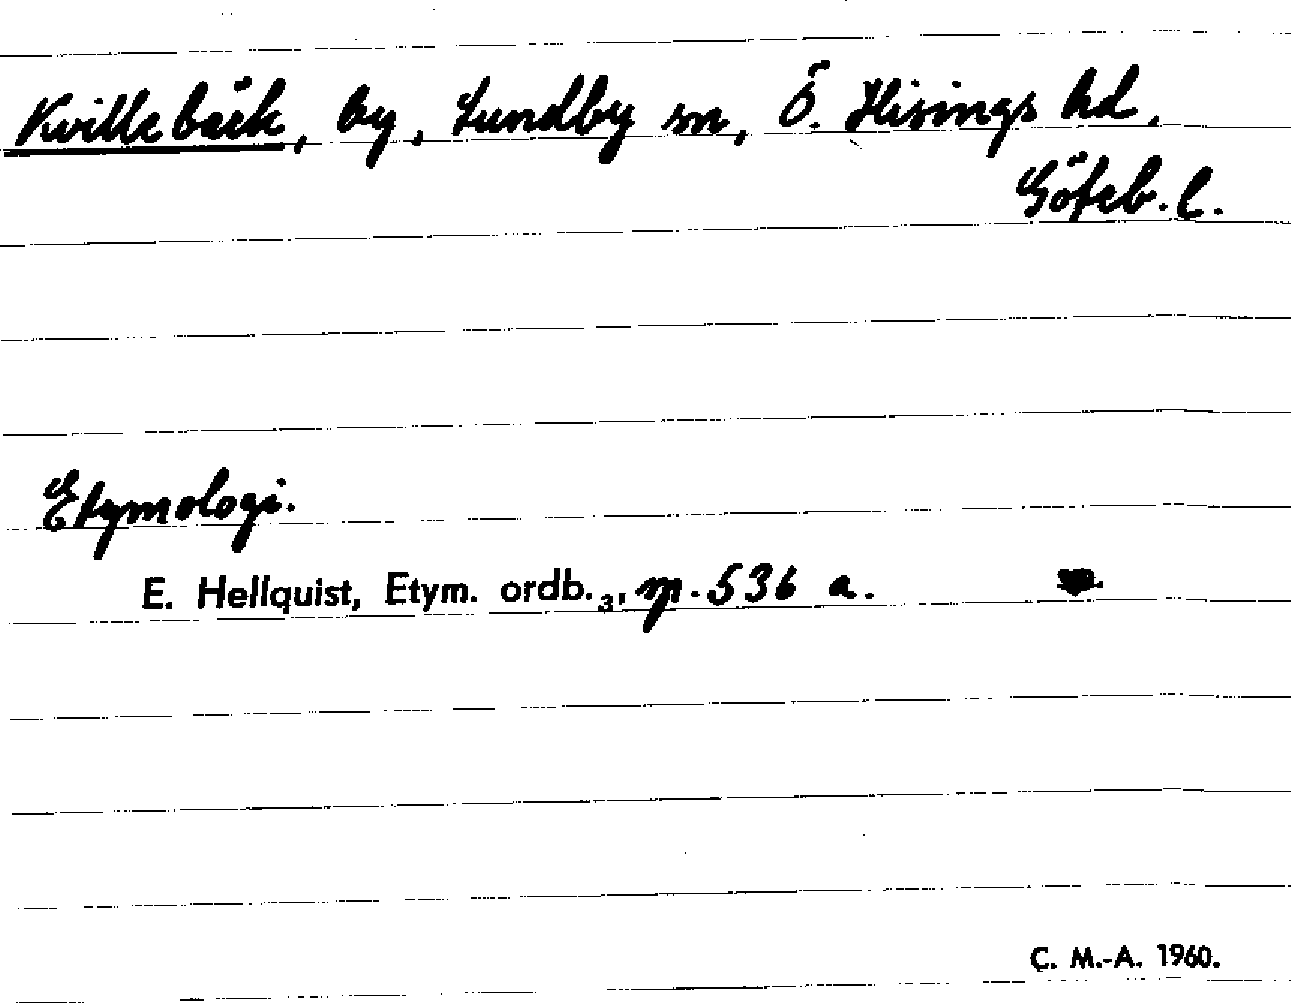 Kvillebäck, by, Lundby sn, Ö. Hisings hd,
Göteb. l.
Etymologi.
E. Hellquist, Etym. ordb. 3, p. 536 a.
C. M.-A. 1960.